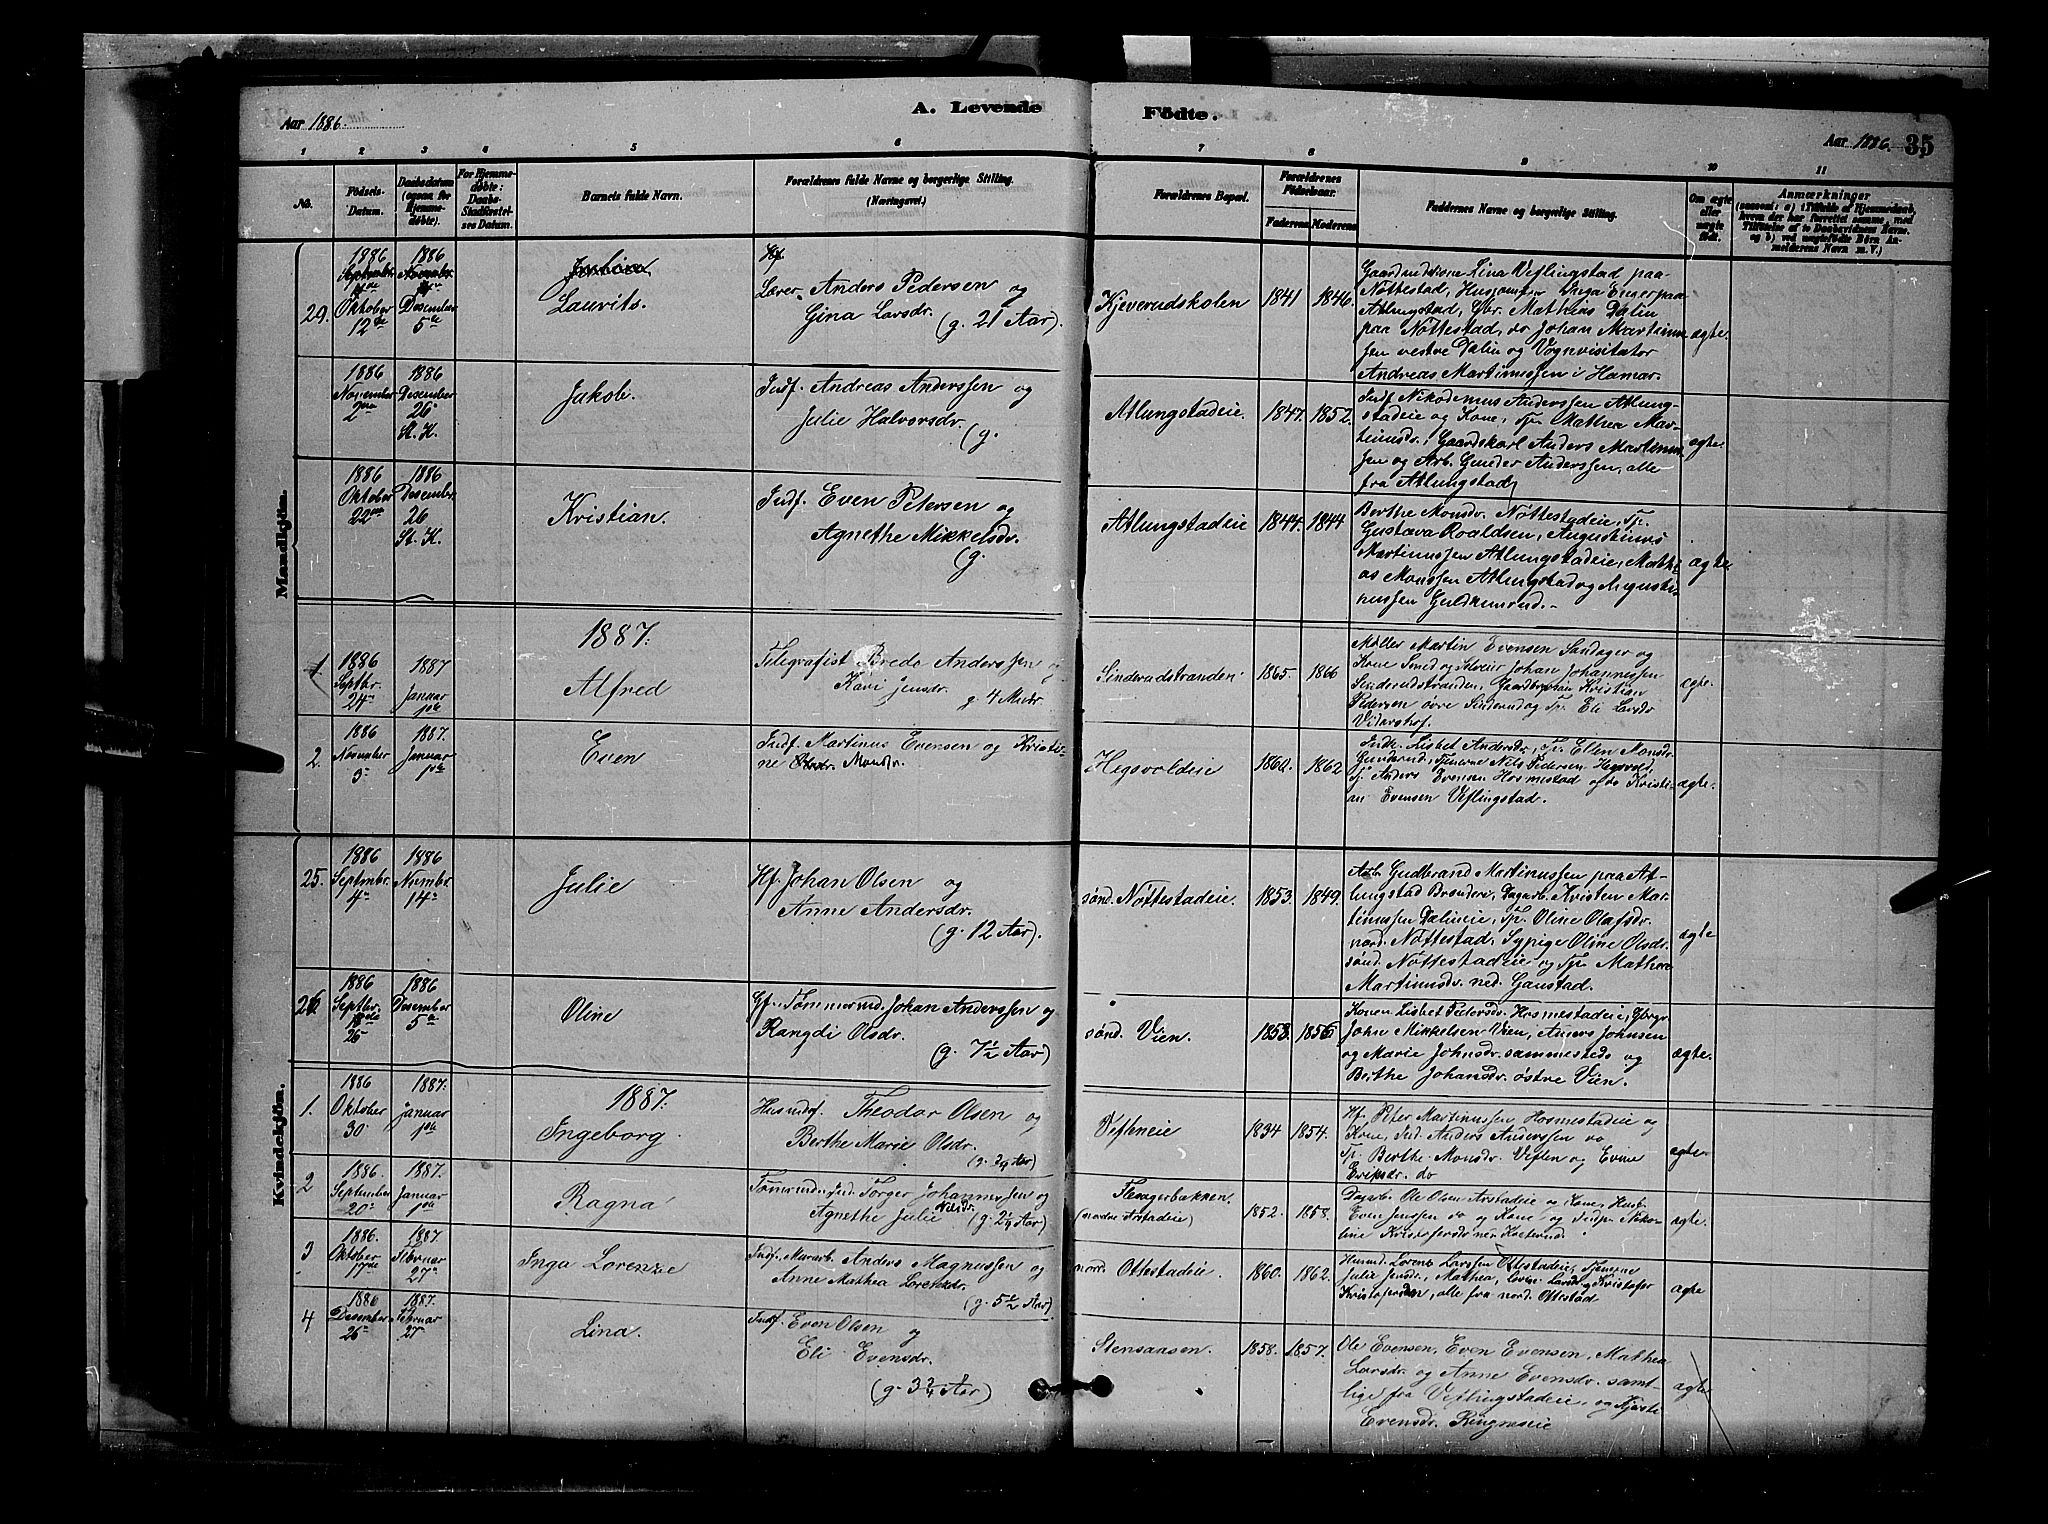 A. Levende
Födte.
Aar 1886.
Aar 1886. 35
1 2 3 4 5 6 7 8 9 10 11
No.
Födsels-
Datum.
Daabsdatum
(ogsaa for
Hjemme-
döbte).
For Hjemme-
döbte:
Daabs-
Stadfæstel-
ses Datum.
Barnets fulde Navn.
Forældrenes fulde Navne og borgerlige Stilling.
(Næringsvei.)
Forældrenes Bopæl.
Forældrenes
Födselsaar.
Faderens Moderens
Faddernes Navne og borgerlige Stilling.
Om ægte
eller
uægte
född.
Anmærkninger
Mandkjön.
29.
1886
Oktober
12te
1886
Desember
5te
Laurits.
Lærer Anders Pedersen og
Gina Larsdr. (g. 21 Aar).
Kjeverudskolen
1841
1846.
Lina Veflingstad paa
Nöttestad,
Atlungstad, Gbr. Mathias Dalin
paa Nöttestad, do Johan Martinus-
sen vestre Dalin og Vognvisitatör
Andreas Martinussen i Hamar.
ægte.
1886
November
2den
1886
Desember
26
St. K.
Jakob.
Indf. Andreas Anderssen og
Julie Halvorsdr.
(g.
Atlungstadeie.
1847.
1852.
Indf Nikodemus Anderssen Atlung-
stadeie og Kone, Tp. Mathea Mar-
tinusdr., Gaardskarl Anders Martinus-
sen og Arb. Gunder Anderssen, alle
fra Atlungstad
ægte.
1886
Oktober
22den
1886
Desember
26
St. K.
Kristian.
Indf. Even Petersen og
Agnethe Mikkelsdr.
(g.
Atlungstadeie
1844.
1844
Berthe Monsdr. Nöttestadeie, Tp.
Gustava Roaldsen, Augustinus
Martinussen Atlungstadeie, Mathi-
as Monssen Atlungstad og Augusti-
nussen
ægte
1887.
1.
1886
Septbr.
24
1887
Januar
1ste
Alfred
Telegrafist Bredo Anderssen og
Kari Jensdr. g. 4 Mndr
Sinderudstranden
1865.
1866
Møller Martin Evensen Sandager og
Kone Smed og Johan Johannessen
Sinderudstranden, Kristian
Pedersen övre Sinderud og Tp. Eli Larsdr
Vidarshof.
ægte.
2.
1886
November
3
1887.
Januar
1ste
Even
Indf. Martinus Evensen og Kristi-
ne Monsdr.
Hegsvoldeie
1860.
1862
Indf. Lisbet Andersdr, Tp. Ellen Monsdr.
Gunderud, Tjenerne Nils Pedersen Hegsvold,
Tj. Anders Evensen Hosmestad og do Kristi-
an Evensen Veflingstad.
ægte.
Kvindekjön.
25.
1886
Septembr.
4de
1886
Novmbr
14de
Julie
Hf. Johan Olsen og
Anne Andersdr.
(g. 12 Aar).
sönd. Nöttestadeie.
1853.
1849.
Arb Gudbrand Martinussen paa At-
lungstad Brænderi, Dagarb. Kristen Mar-
tinussen Dalineie, Tp. Oline Olafsdr.
nord. Nöttestad, Sypige Oline Olsdr.
sönd. Nöttestadeie og Tp. Mathea
Martinusdr. ned. Gaustad.
ægte
26
1886
Septbr.
26
1886
Desember
5te
Oline
Gf. Tømmermd. Johan Anderssen og
Rangdi Olsdr.
(g. 7½ Aar)
sönd. Vien.
1858.
1856
Konen Lisbet Pedersdr. Hosmestadeie,
John Mikkelsen Vien, Johnsen
og Marie Johnsdr. sammesteds og
Berthe Johansdr. östre Vien.
ægte.
1887.
1.
1886
Oktober
30
1887.
Januar
1ste
Ingeborg.
Husmdf. Theodor Olsen og
Berthe Marie Olsdr.
(g. ¾ Aar)
Vefleneie
1834
1854.
Hf. Peter Martinussen Hosmestadeie og
Kone, Ind. Anders Anderssen do
Tp. Berthe Monsdr. Veflen og Evine
Eriksdr. do
ægte
2
1886.
September
20
1887.
Januar
1ste
Ragna
Tømrmd. Ind. Torger Johannessen og
Agnethe Julie Nilsdr. (g. 2¼ Aar)
Flesagerbakken.
(nordre Arstadeie)
1852.
1858.
Dagarb. Ole Olsen Arstadeie og Kone, Husf.
Even Jenssen do og Kone og Indp. Niko-
line Kristofersdr
ægte.
3
1886.
Oktober
17de
1887
Februar
27
Inga Lorenze
Indf. Murarb. Anders Magnussen og
Anne Mathea Lorentsdr.
(g. 5½ Aar)
nord. Ottestadeie.
1860.
1862.
Husmd. Lorens Larssen Ottestadeie, Tjenerne
Julie Jensdr., Mathea, Larsdr. og Kristofer
Kristofersen, alle fra nord. Ottestad
ægte
4
1886
Desember
26
1887.
Februar
27
Lina.
Indf. Even Olsen og
Eli Evensdr.
(g. 3¾ Aar)
Stensansen.
1858.
1857.
Ole Evensen, Even Evensen, Mathea
Larsdr. og Anne Evensdr. samt-
lige fra Veflingstadeie, og Kjersti
Evensdr. Ringneseie
ægte